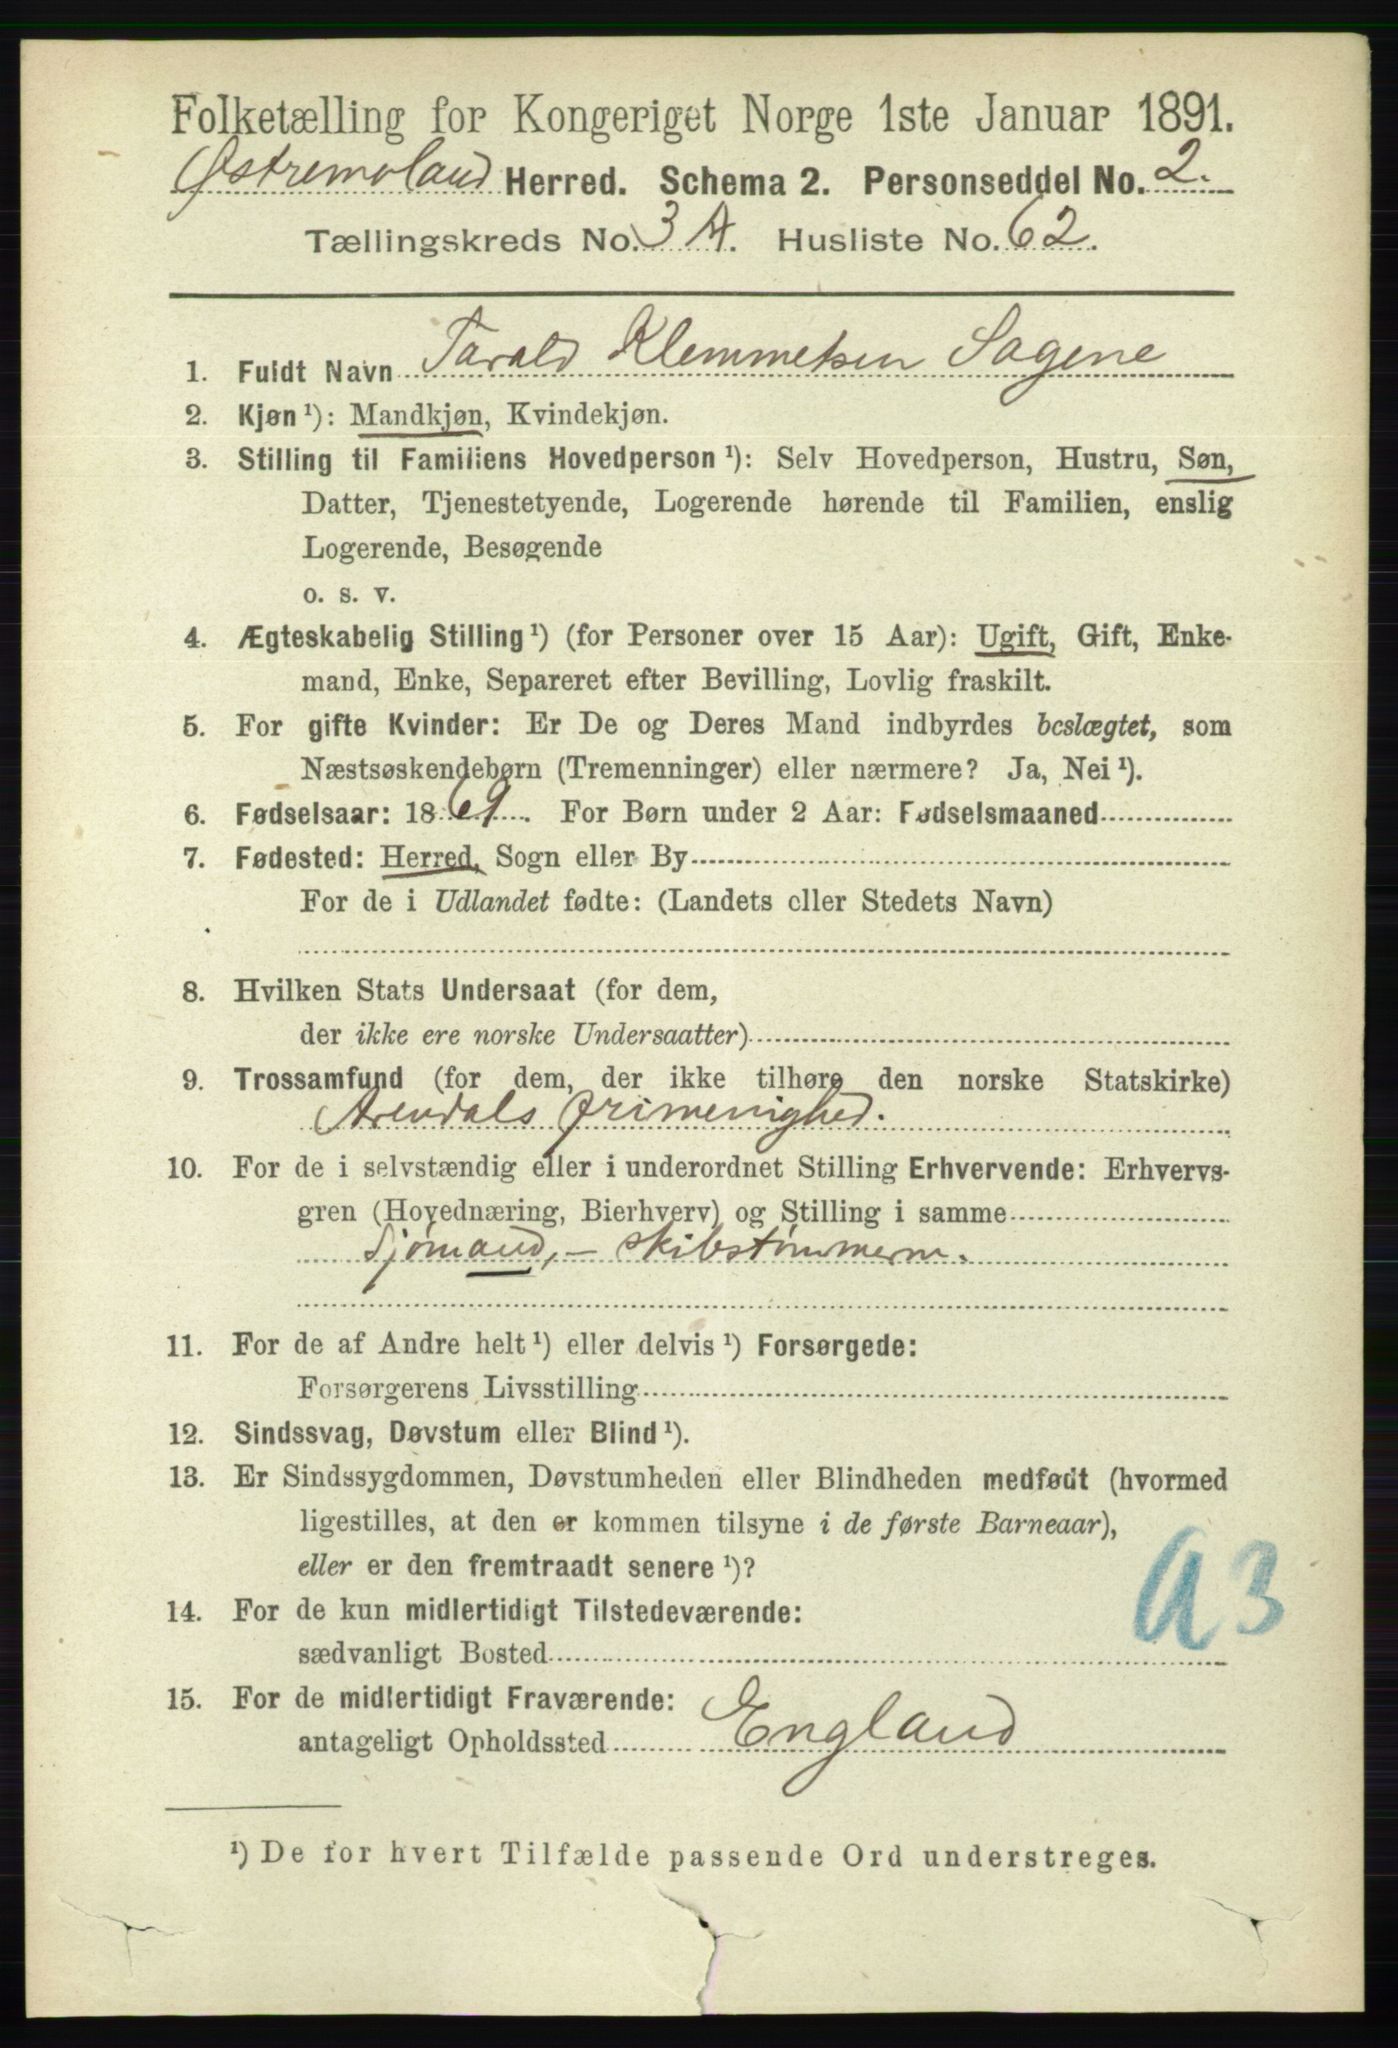 Folketælling for Kongeriget Norge 1ste Januar 1891.
Østremoland Herred. Schema 2. Personseddel No. 2.
Tællingskreds No. 3 A. Husliste No. 62.
1. Fuldt Navn Tarald Klemmetsen Sagene
2. Kjøn ¹): Mandkjøn, Kvindekjøn.
3. Stilling til Familiens Hovedperson ¹): Selv Hovedperson, Hustru, Søn,
Datter, Tjenestetyende, Logerende hørende til Familien, enslig
Logerende, Besøgende
o. s. v.
4. Ægteskabelig Stilling ¹) (for Personer over 15 Aar): Ugift, Gift, Enke-
mand, Enke, Separeret efter Bevilling, Lovlig fraskilt.
5. For gifte Kvinder: Er De og Deres Mand indbyrdes beslægtet, som
Næstsøskendebørn (Tremenninger) eller nærmere? Ja, Nei ¹).
6. Fødselsaar: 1869. For Børn under 2 Aar: Fødselsmaaned
7. Fødested: Herred, Sogn eller By
For de i Udlandet fødte: (Landets eller Stedets Navn)
8. Hvilken Stats Undersaat (for dem,
der ikke ere norske Undersaatter)
9. Trossamfund (for dem, der ikke tilhøre den norske Statskirke)
Arendals frimenighed.
10. For de i selvstændig eller i underordnet Stilling Erhvervende: Erhvervs-
gren (Hovednæring, Bierhverv) og Stilling i samme
Sjømand, - skibstømmerm.
11. For de af Andre helt ¹) eller delvis ¹) Forsørgede:
Forsørgerens Livsstilling
12. Sindssvag, Døvstum eller Blind ¹).
13. Er Sindssygdommen, Døvstumheden eller Blindheden medfødt (hvormed
ligestilles, at den er kommen tilsyne i de første Barneaar),
eller er den fremtraadt senere ¹)?
a3
14. For de kun midlertidigt Tilstedeværende:
sædvanligt Bosted
15. For de midlertidigt Fraværende:
antageligt Opholdssted England
¹) De for hvert Tilfælde passende Ord understreges.